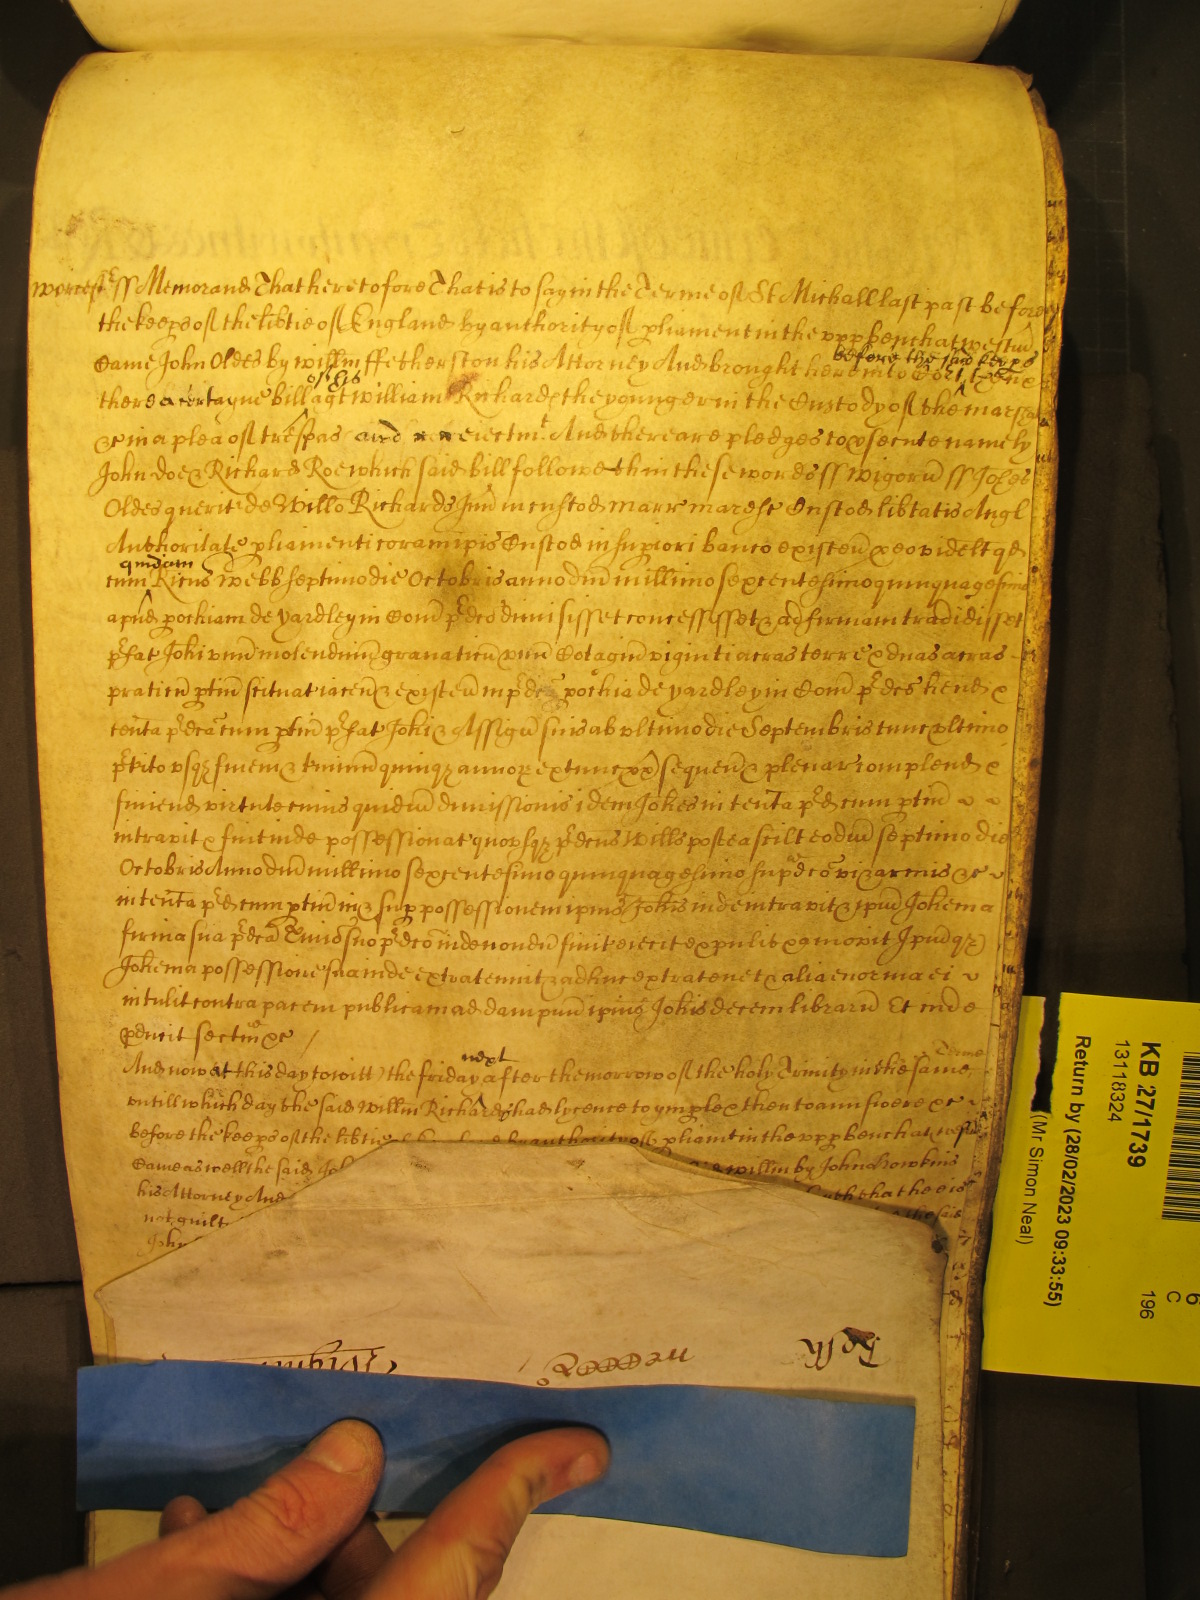 worcest ss Memorand That heretofore That is to say in the Terme of St Michall last past before
the keeps of the libtie of England by authority of pliament in the vpp bench at westm
before the said keeps
Came John Oldes by willm ffetherston his Attorney And brought here into Cort
of his
there a certayne bill agt william Richards the younger in the Custody of the marsh
&c in a plea of trespas and eiectmt And there are pledges to psecute namely
John doe & Richard Roe which said bill followeth in these words ss wigorn ss Johes
Oldes querit de Willo Richards Jun in custod marr maresc Custod libtatis Angl
Authoritate pliamenti coram ipis Custod in supiori banco existen p eo videlt qd
quidam
cum Ricus Webb septimo die Octobris anno dni millimo sexcentesimo quinquagesimo
apud pochiam de yardley in Com pdco dimisisset concessisset & ad firmam tradidisset
pfat Johi vnum molendinu granaticu vnu Cotagiu viginti acras terre & duas acras
praticu ptin scituat iacen & existen in pdca pochia de yardley in Com pdco hend &
tenta pdca cum ptin pfat Johi & Assign suis ab vltimo die Septembris tunc vltimo
ptito vsqz finem & tminu quinqz annor extunc sequen & plenar complend &
finiend virtute cuius quidm dimissionis idem Johes in tenta pd cum ptin
intravit & fuit inde possessionat quousqz pdcus Wills postea scilt eodm septimo die
Octobris Anno dni millimo sexcentesimo quinquagesimo supdco vi & armis &c
in tenta pd cum ptin in & sup possessionem ipius Johis inde intravit & ipm Johem a
firma sua pdca Tmino suo pdco inde nondu finit eiecit expulit & amovit Ipmqz
Johem a possessione sua inde extratenuit & adhuc extratenet & alia enormia ei
intulit contra pacem publicam ad dampnu ipius Johis decem librarum Et inde
pducit sectm &c
next Terme
And now at this day to witt the friday after the morrow of the holy Trinity in the same
vntill which day the said willm Richards had lycence to ymplex then to answere &c
before the keeps of the libtie by authority of pliamt in the vpp bench at westm
Came as well the said willm by John Howkins
his Attorney And that he is
not guilt the said
John
KB 27/1739
13118324
Return by (28/02/2023 09:33:55)
(Mr Simon Neal)
6
C
196